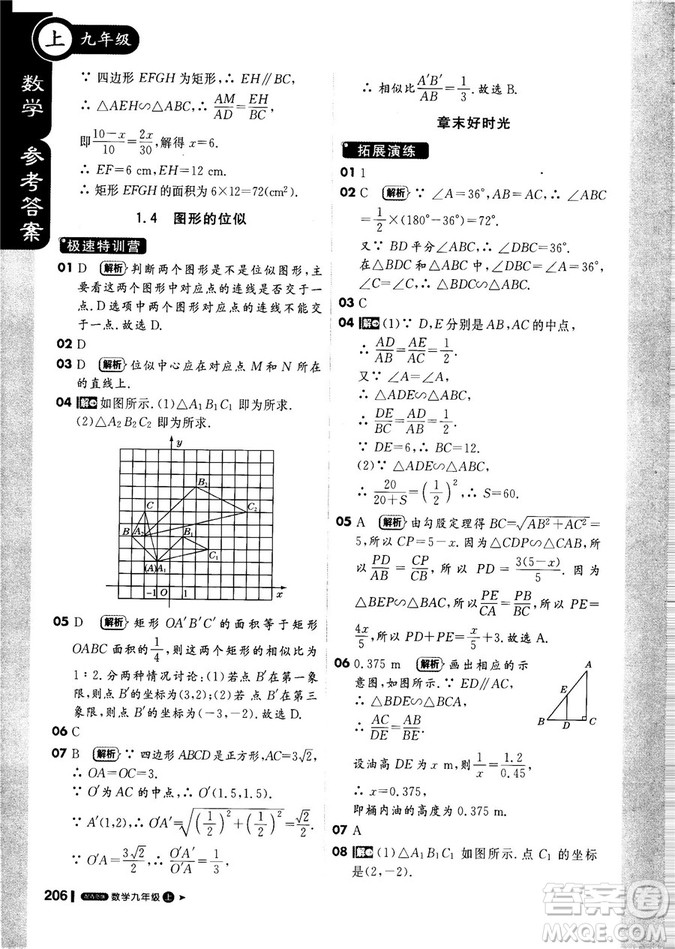 上 九年级
数学 参考答案
∵ 四边形 EFGH 为矩形, ∴ EH∥BC,
∴ △AEH∽△ABC, ∴ AM/AD = EH/BC,
即 (10-x)/10 = 2x/30, 解得 x=6.
∴ EF=6 cm, EH=12 cm.
∴ 矩形 EFGH 的面积为 6×12=72(cm²).
1.4 图形的位似
极速特训营
01 D 解析 判断两个图形是不是位似图形, 主
要看这两个图形中对应点的连线是否交于一
点. D 选项中两个图形对应点的连线不能交于
一点. 故选 D.
02 D
03 D 解析 位似中心应在对应点 M 和 N 所在
的直线上.
04 解 如图所示. (1)△A₁B₁C₁ 即为所求.
(2)△A₂B₂C₂ 即为所求.
y
B₂
C
C₂
B A₂ B₁
C₁
(A) A₁
-1 O 1 x
05 D 解析 矩形 OA′B′C′ 的面积等于矩形
OABC 面积的 1/4, 则这两个矩形的相似比为
1∶2. 分两种情况讨论: ① 若 B′ 在第一象
限, 则点 B′ 的坐标为 (3,2); ② 若点 B′ 在第三
象限, 则点 B′ 的坐标为 (-3,-2). 故选 D.
06 C
07 B 解析 ∵ 四边形 ABCD 是正方形, AC=3√2,
∴ OA=OC=3. ∴ O′(1.5,1.5).
∵ A′(1,2), ∴ O′A′=√((1/2)²+(1/2)²)=√2/2.
∵ O′A=3√2/2, ∴ O′A′/O′A=1/3.
206 数学九年级 上
∴ 相似比 A′B′/AB = 1/3. 故选 B.
章末好时光
拓展演练
01 1
02 C 解析 ∵ ∠A=36°, ∴ ∠ABC=
1/2×(180°-36°)=72°.
又∵ BD 平分∠ABC, ∴ ∠DBC=36°.
在△BDC 和△ABC 中, ∠DBC=∠A=36°,
∠C=∠C, ∴ △BDC∽△ABC.
03 C
04 解 (1)∵ D,E 分别是 AB,AC 的中点,
∴ AD/AB = AE/AC = 1/2.
又∵ ∠A=∠A,
∴ △ADE∽△ABC.
∴ DE/BC = AD/AB = 1/2.
∵ DE=6, ∴ BC=12.
(2)∵ △ADE∽△ABC,
∴ 20/(20+S) = (1/2)², ∴ S=60.
05 A 解析 由勾股定理得 BC=√(AB²+AC²)=
5, 所以 CP=5-x. 因为△CDP∽△CAB, 所
以 PD/AB = CP/CB, 所以 PD = 3(5-x)/5. 因为
△BEP∽△BAC, 所以 PE/CA = PB/BC, 所以 PE =
4x/5, 所以 PD+PE = x/5+3. 故选 A.
06 0.375 m 解析 画出相应的示
意图, 如图所示. ∵ ED∥AC,
∴ △BDE∽△BCA.
∴ AC/DE = AB/BE.
A
E
B D C
设油高 DE 为 x m, 则 1/x = 1.2/0.45,
∴ x=0.375.
即桶内油的高度为 0.375 m.
07 A
08 解 (1)如图所示. 点 C₁ 的坐标为
(2,-2).
作业精灵